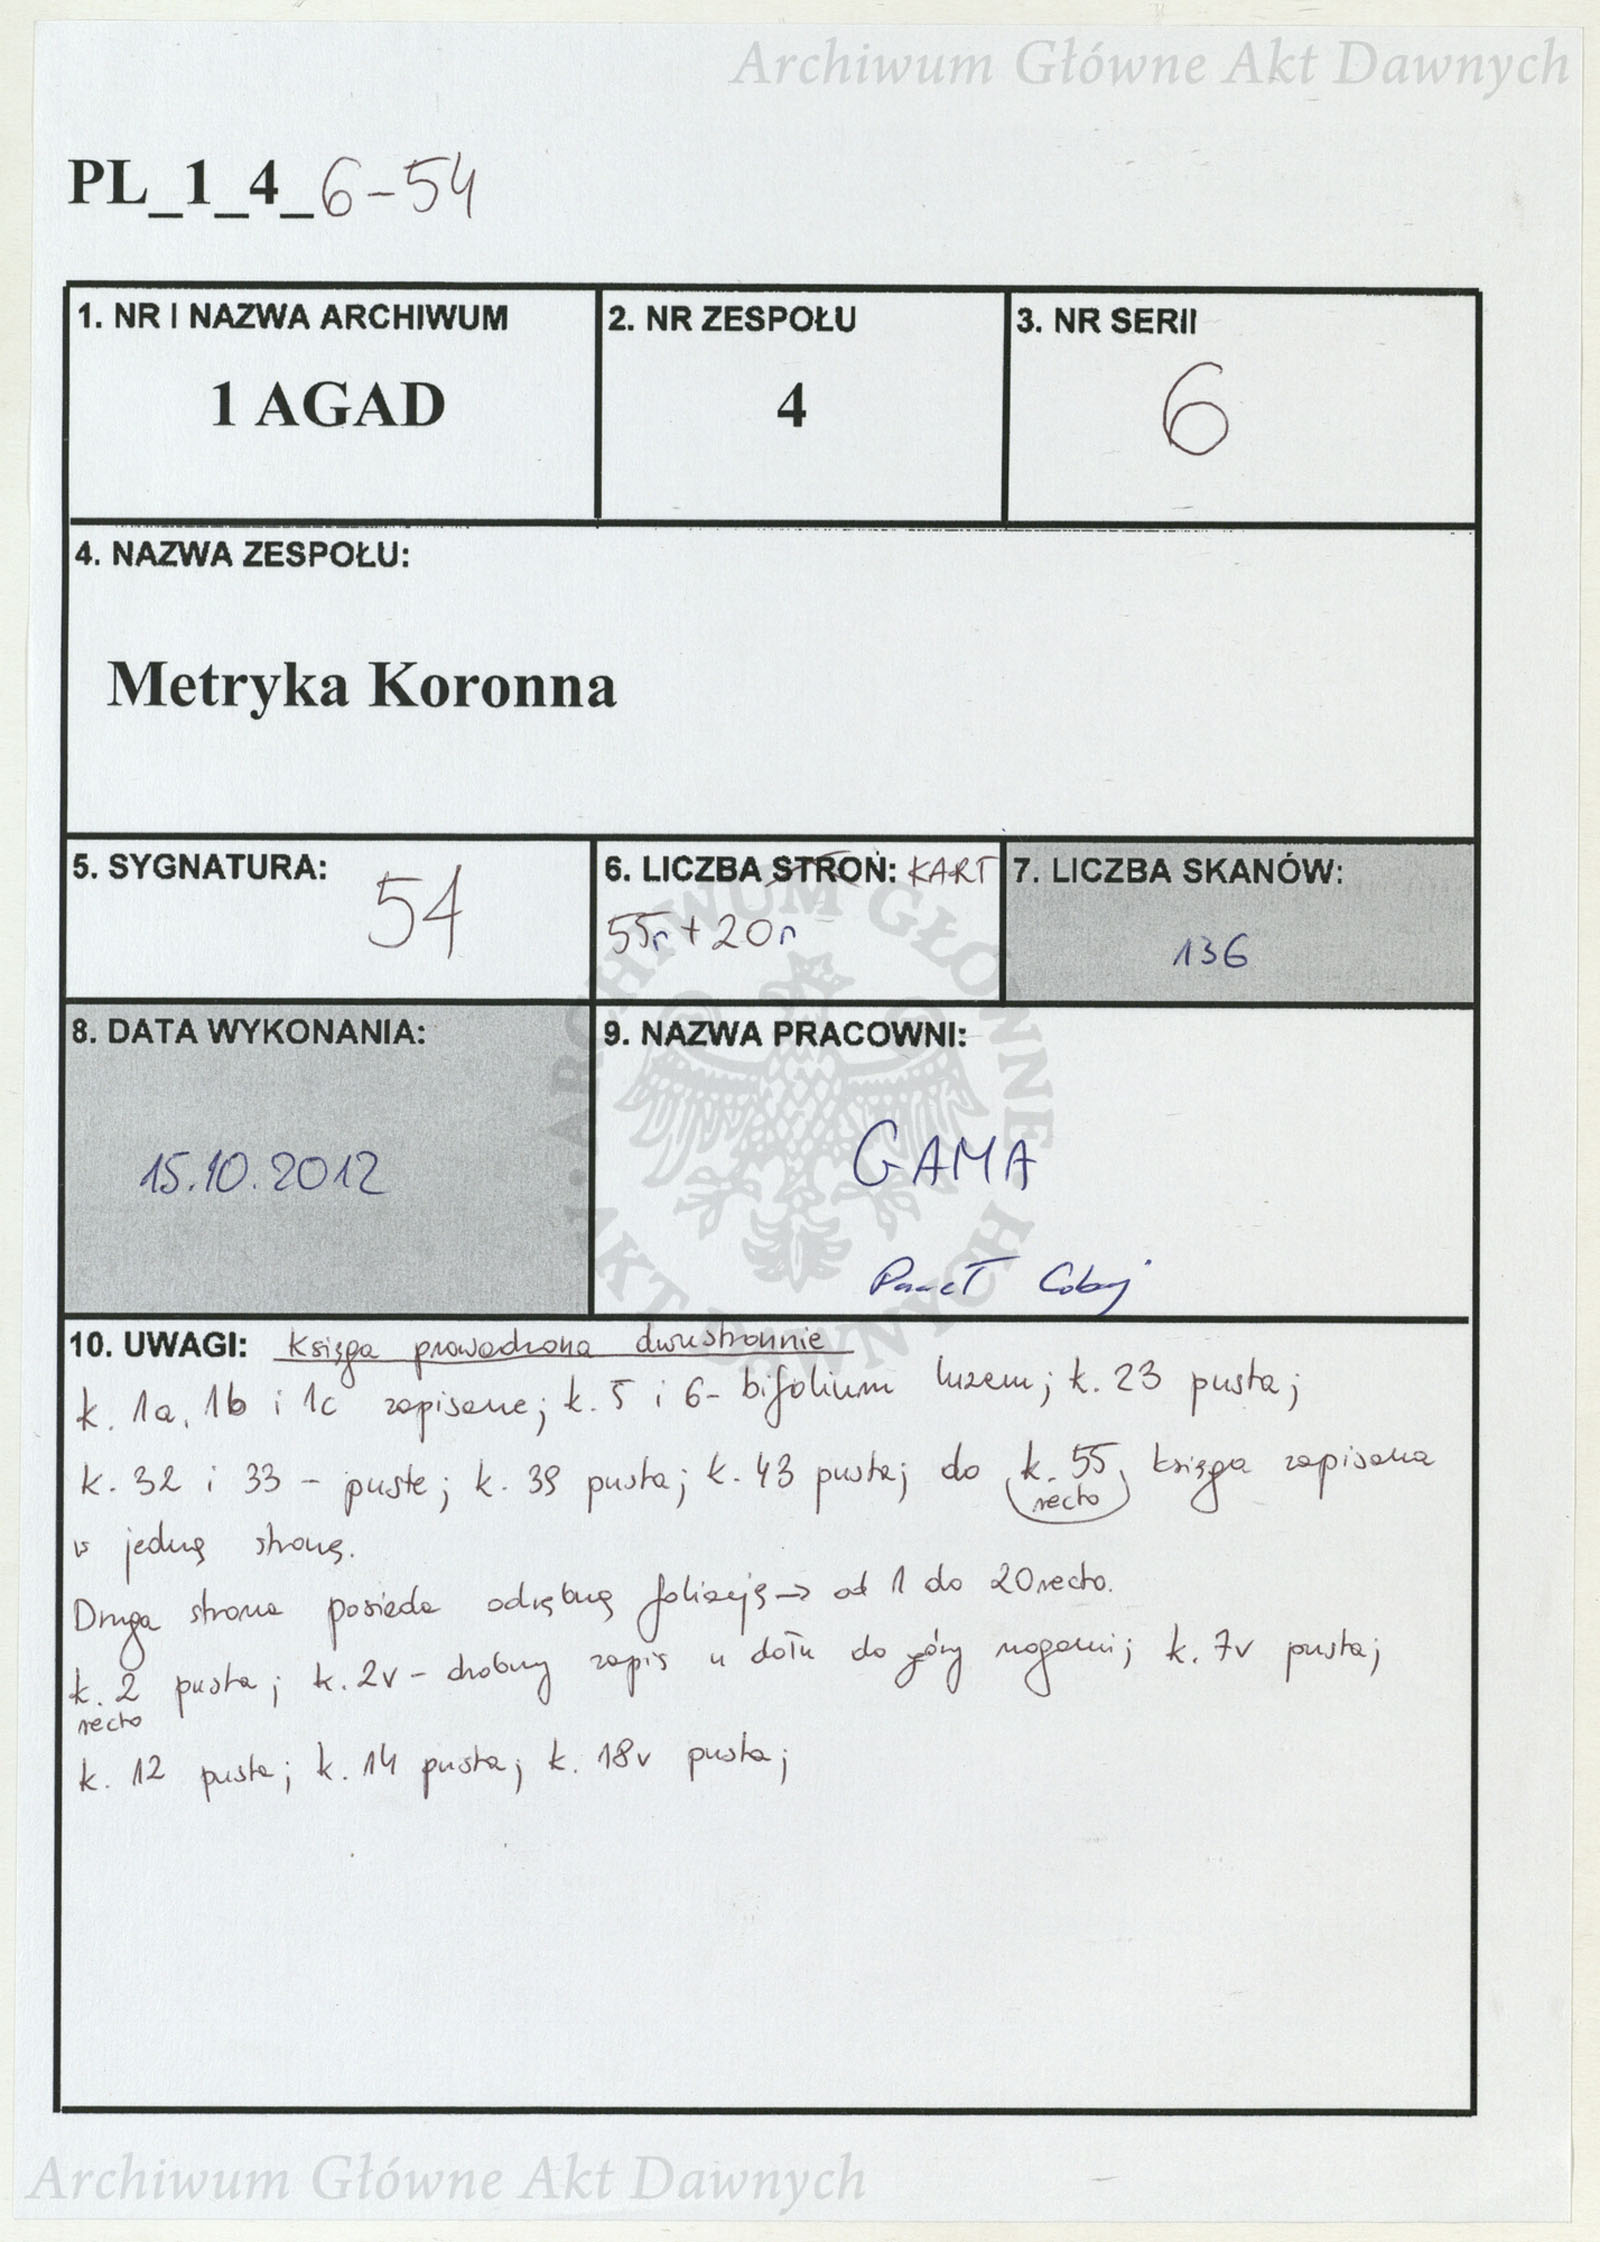 Archiwum Główne Akt Dawnych
PL_1_4_6-54
1. NR I NAZWA ARCHIWUM
1 AGAD
2. NR ZESPOŁU
4
3. NR SERII
6
4. NAZWA ZESPOŁU:
Metryka Koronna
5. SYGNATURA:
54
6. LICZBA STRON: KART
55r + 20r
7. LICZBA SKANÓW:
136
8. DATA WYKONANIA:
15.10.2012
9. NAZWA PRACOWNI:
GAMA
Paweł
10. UWAGI: Księga prowadzona dwustronnie
k. 1a, 1b i 1c zapisane; k. 5 i 6 - bifolium luzem; k. 23 pusta;
k. 32 i 33 - puste; k. 39 pusta; k. 43 pusta; do k. 55 księga zapisana
recto
w jedną stronę.
Druga strona posiada odrębną foliację → od 1 do 20 recto.
k. 2 pusta; k. 2v - drobny zapis u dołu do góry nogami; k. 7v pusta;
recto
k. 12 pusta; k. 14 pusta; k. 18v pusta;
ARCHIWUM GŁÓWNE AKT DAWNYCH
Archiwum Główne Akt Dawnych